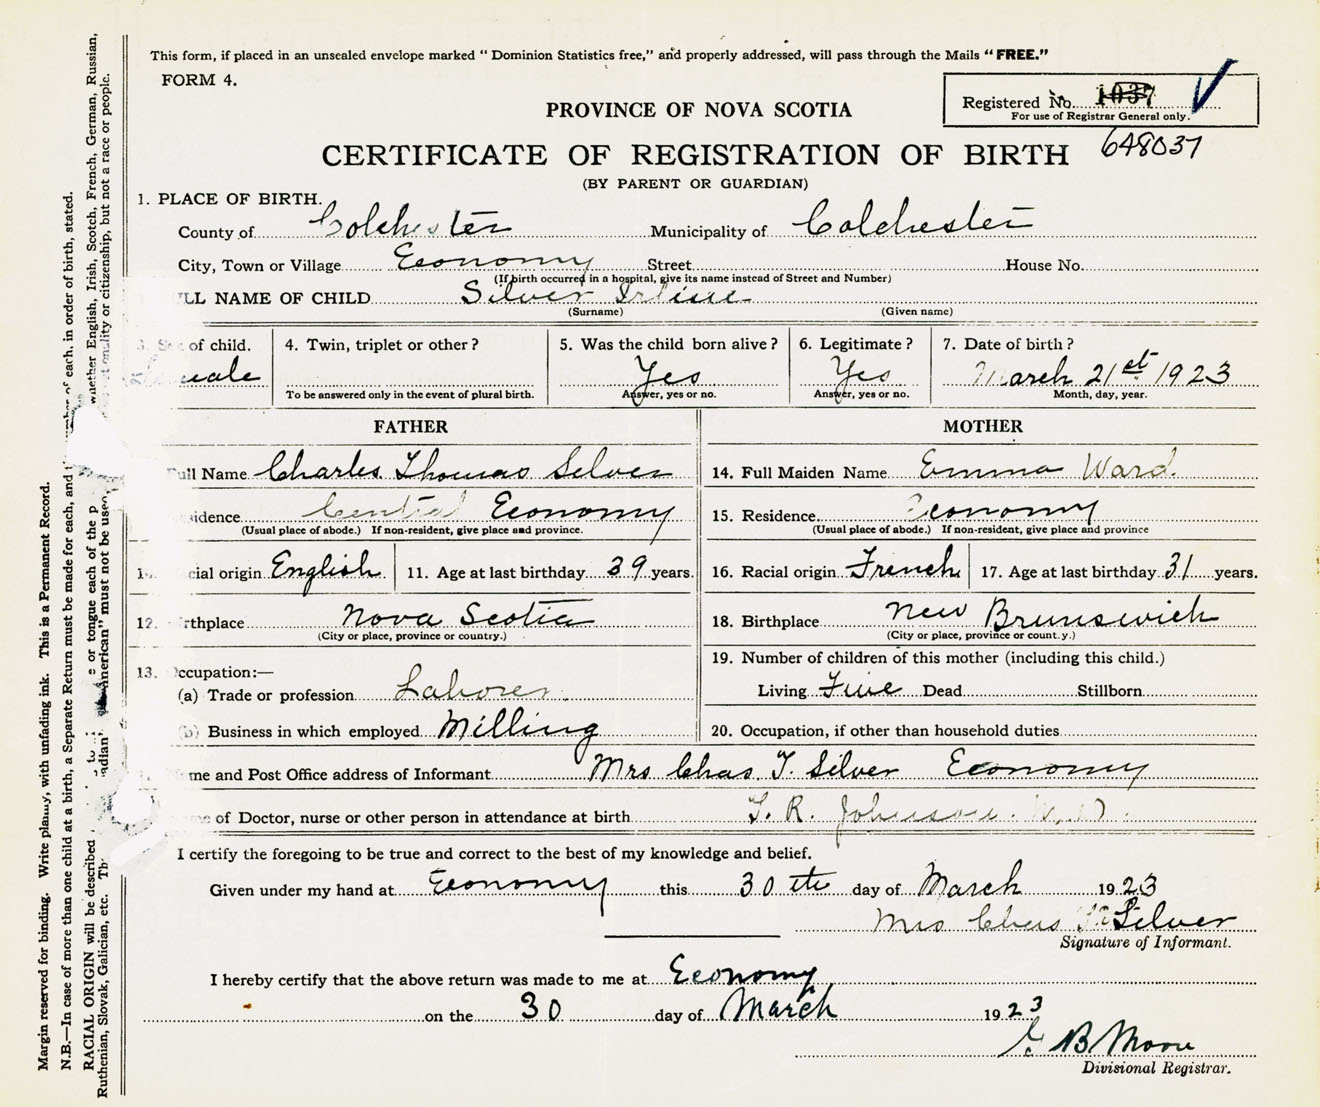 This form, if placed in an unsealed envelope marked “Dominion Statistics free,” and properly addressed, will pass through the Mails “FREE.”
FORM 4.
Registered No. 1037
For use of Registrar General only.
648037
PROVINCE OF NOVA SCOTIA
CERTIFICATE OF REGISTRATION OF BIRTH
(BY PARENT OR GUARDIAN)
1. PLACE OF BIRTH.
County of Colchester Municipality of Colchester
City, Town or Village Economy Street House No.
(If birth occurred in a hospital, give its name instead of Street and Number)
LL NAME OF CHILD Silver
(Surname) (Given name)
3. of child. 4. Twin, triplet or other? 5. Was the child born alive? 6. Legitimate? 7. Date of birth?
Yes Yes March 21st 1923
To be answered only in the event of plural birth. Answer, yes or no. Answer, yes or no. Month, day, year.
FATHER MOTHER
ull Name Charles Thomas Silver 14. Full Maiden Name Emma Ward.
sidence Central Economy 15. Residence Economy
(Usual place of abode.) If non-resident, give place and province. (Usual place of abode.) If non-resident, give place and province
cial origin English 11. Age at last birthday 39 years. 16. Racial origin French 17. Age at last birthday 31 years.
12. rthplace Nova Scotia 18. Birthplace New Brunswick
(City or place, province or country.) (City or place, province or count.y.)
13. ccupation:— 19. Number of children of this mother (including this child.)
(a) Trade or profession Laborer Living Five Dead Stillborn
(b) Business in which employed Milling 20. Occupation, if other than household duties
me and Post Office address of Informant Mrs Chas T. Silver Economy
of Doctor, nurse or other person in attendance at birth T. R. Johnson M.D.
I certify the foregoing to be true and correct to the best of my knowledge and belief.
Given under my hand at Economy this 30th day of March 1923
Mrs Chas T. Silver
Signature of Informant.
I hereby certify that the above return was made to me at Economy
on the 30 day of March 1923
B Moore
Divisional Registrar.
Margin reserved for binding. Write plainly, with unfading ink. This is a Permanent Record.
N.B.—In case of more than one child at a birth, a Separate Return must be made for each, and of each, in order of birth, stated.
RACIAL ORIGIN will be described or tongue each of the p whether English, Irish, Scotch, French, German, Russian,
Ruthenian, Slovak, Galician, etc. must not be used, nationality or citizenship, but not a race or people.